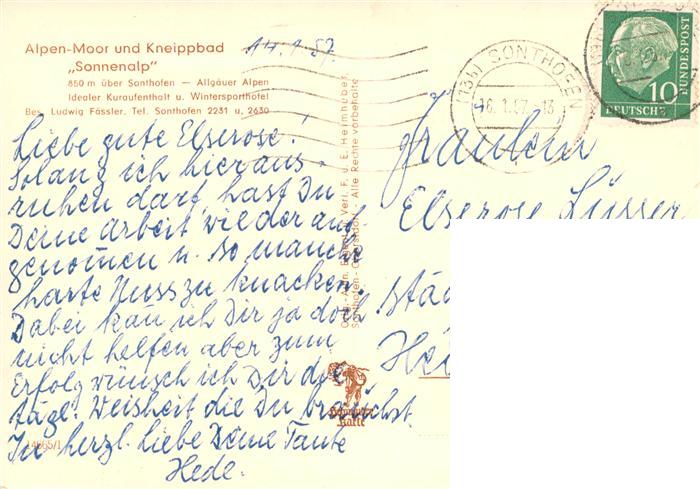 Alpen-Moor und Kneippbad
„Sonnenalp"
850 m über Sonthofen — Allgäuer Alpen
Idealer Kuraufenthalt u. Wintersporthotel
Bes. Ludwig Fässler, Tel. Sonthofen 2231 u. 2630
14.1.57.
Liebe gute Elserose!
Solang ich hier aus-
ruhen darf, hast Du
Deine Arbeit wieder auf
genomen u. so manche
harte Nuss zu knacken.
Dabei kan ich Dir ja doch
nicht helfen aber zum
Erfolg wünsch ich Dir die
tägl. Weisheit die Du brauchst
In herzl. Liebe Deine Tante
Hede.
Verl. F. u. E. Heimhuber,
Sonthofen - Alle Rechte vorbehalten
Heimhuber
Karte
SONTHOFEN
16.1.57.-13
DEUTSCHE
BUNDESPOST
10
Fräulein
Elserose
Stä
Hei